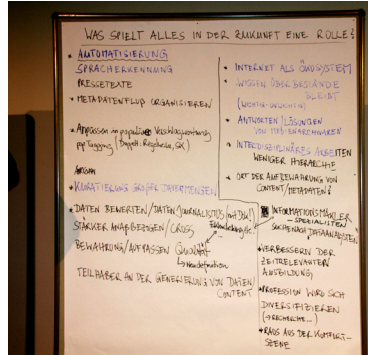 WAS SPIELT ALLES IN DER ZUKUNFT EINE ROLLE?
* AUTOMATISIERUNG
SPRACHERKENNUNG
PRESSETEXTE
* METADATENFLUß ORGANISIEREN
* Anpassen an populäre Verschlagwortung
pop Tagging
* KURATIERUNG GROßER DATENMENGEN
* DATEN BEWERTEN/DATENJOURNALISTUS (mit Dok!)
STÄRKER ANAPBEZOGEN/CROSS
BEWAHRUNG/AUFPASSEN
↳ Neudefinition
TEILHABER AN DER GENERIERUNG VON DATEN
CONTENT
* INTERNET ALS ÖKOSYSTEM
* WISSEN ÜBER BESTÄNDE
BLEIBT
(WICHTIG-UNWICHTIG)
* ANTWORTEN/LÖSUNGEN
VON MEDIENARCHIVAREN
* INTERDISZIPLINÄRES ARBEITEN
WENIGER HIERARCHIE
* ORT DER AUFBEWAHRUNG VON
CONTENT/METADATEN?
INFORMATIONSMAKLER
- SPEZIALISTEN
SUCHE NACH DATAANALYSTEN
* VERBESSERN DER
ZEITRELEVANTEN
AUSBILDUNG
* PROFESSION WIRD SICH
DIVERSIFIZIEREN
(→ RECHERCHE...)
* RAUS AUS DER KOMFORT-
SZENE